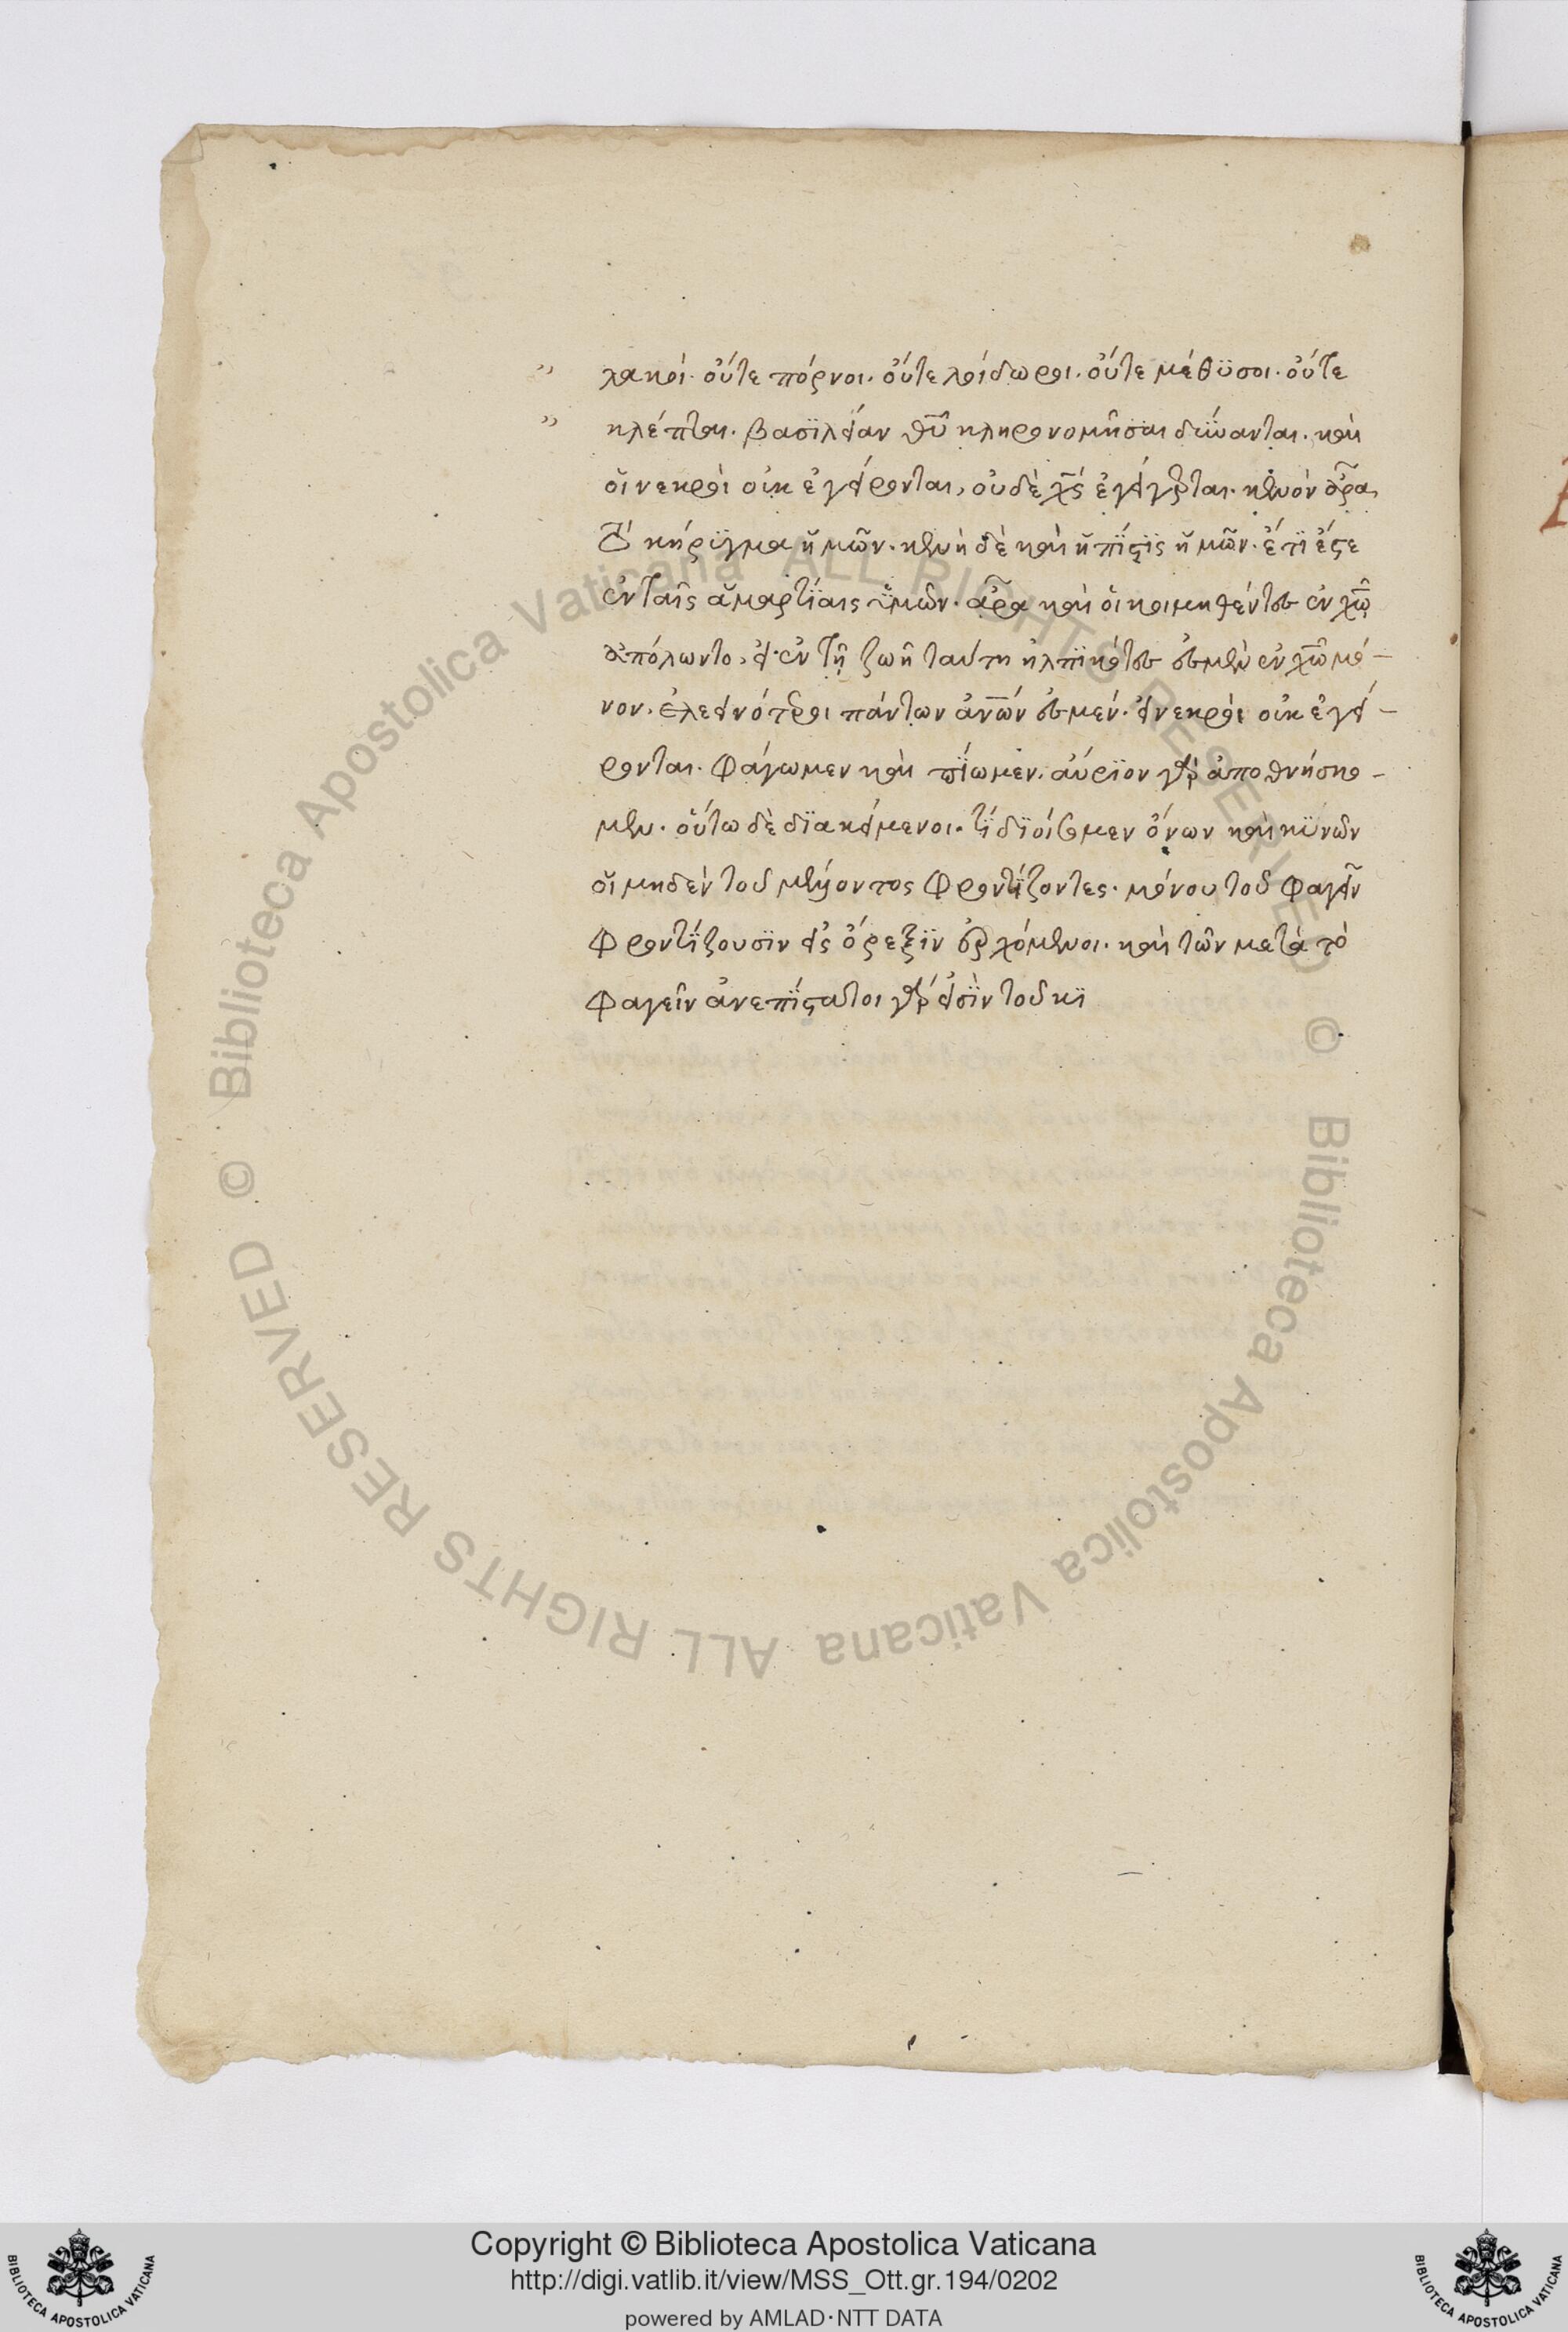 λακοὶ· οὔτε πόρνοι· οὔτε λοίδωροι· οὔτε μέθϋσοι· οὔτε
κλέπται· βασϊλείαν θῡ κληρονομῆσϊαι δϋνανται· καὶ
οἱ νεκροὶ οὐκ ἐγείρονται, οὐδὲ χς̄ ἐγείγερται· κενὸν ἄρα
τὸ κήρϋγμα ἡμῶν· κενὴ δὲ καὶ ἡ πίστϊς ἡμῶν· ἔτϊ ἐστε
ἐν ταῖς ἁμαρτίαις ὑμῶν· ἆρα καὶ οἱ κοιμηθέντες ἐν χω̄
ἀπόλωντο, εἰ ἐν τῆ ζωῆ ταύτη ἠλπϊκότες ἐσμὲν ἐν χω̄ μό-
νον· ἐλεεινότεροι πάντων ἀνω̄ν ἐσμέν· εἰ νεκροὶ οὐκ ἐγεί-
ρονται· φάγωμεν καὶ πίωμεν· αὔρϊον γὰρ ἀποθνήσκο-
μεν· οὕτω δὲ δϊακείμενοι· τί δϊοίσομεν ὄνων καὶ κϋνῶν
οἱ μηδὲν τοῦ μένοντος φροντίζοντες· μόνου τοῦ φαγεῖν
φροντίζουσϊν εἰς ὄρεξϊν ἐρχόμενοι· καὶ τῶν μετὰ τὸ
φαγεῖν ἀνεπίστατοι γάρ εἰσϊν τοῦ κϊ
Copyright © Biblioteca Apostolica Vaticana
http://digi.vatlib.it/view/MSS_Ott.gr.194/0202
powered by AMLAD·NTT DATA
© Biblioteca Apostolica Vaticana ALL RIGHTS RESERVED
© Biblioteca Apostolica Vaticana ALL RIGHTS RESERVED
BIBLIOTECA APOSTOLICA VATICANA
BIBLIOTECA APOSTOLICA VATICANA